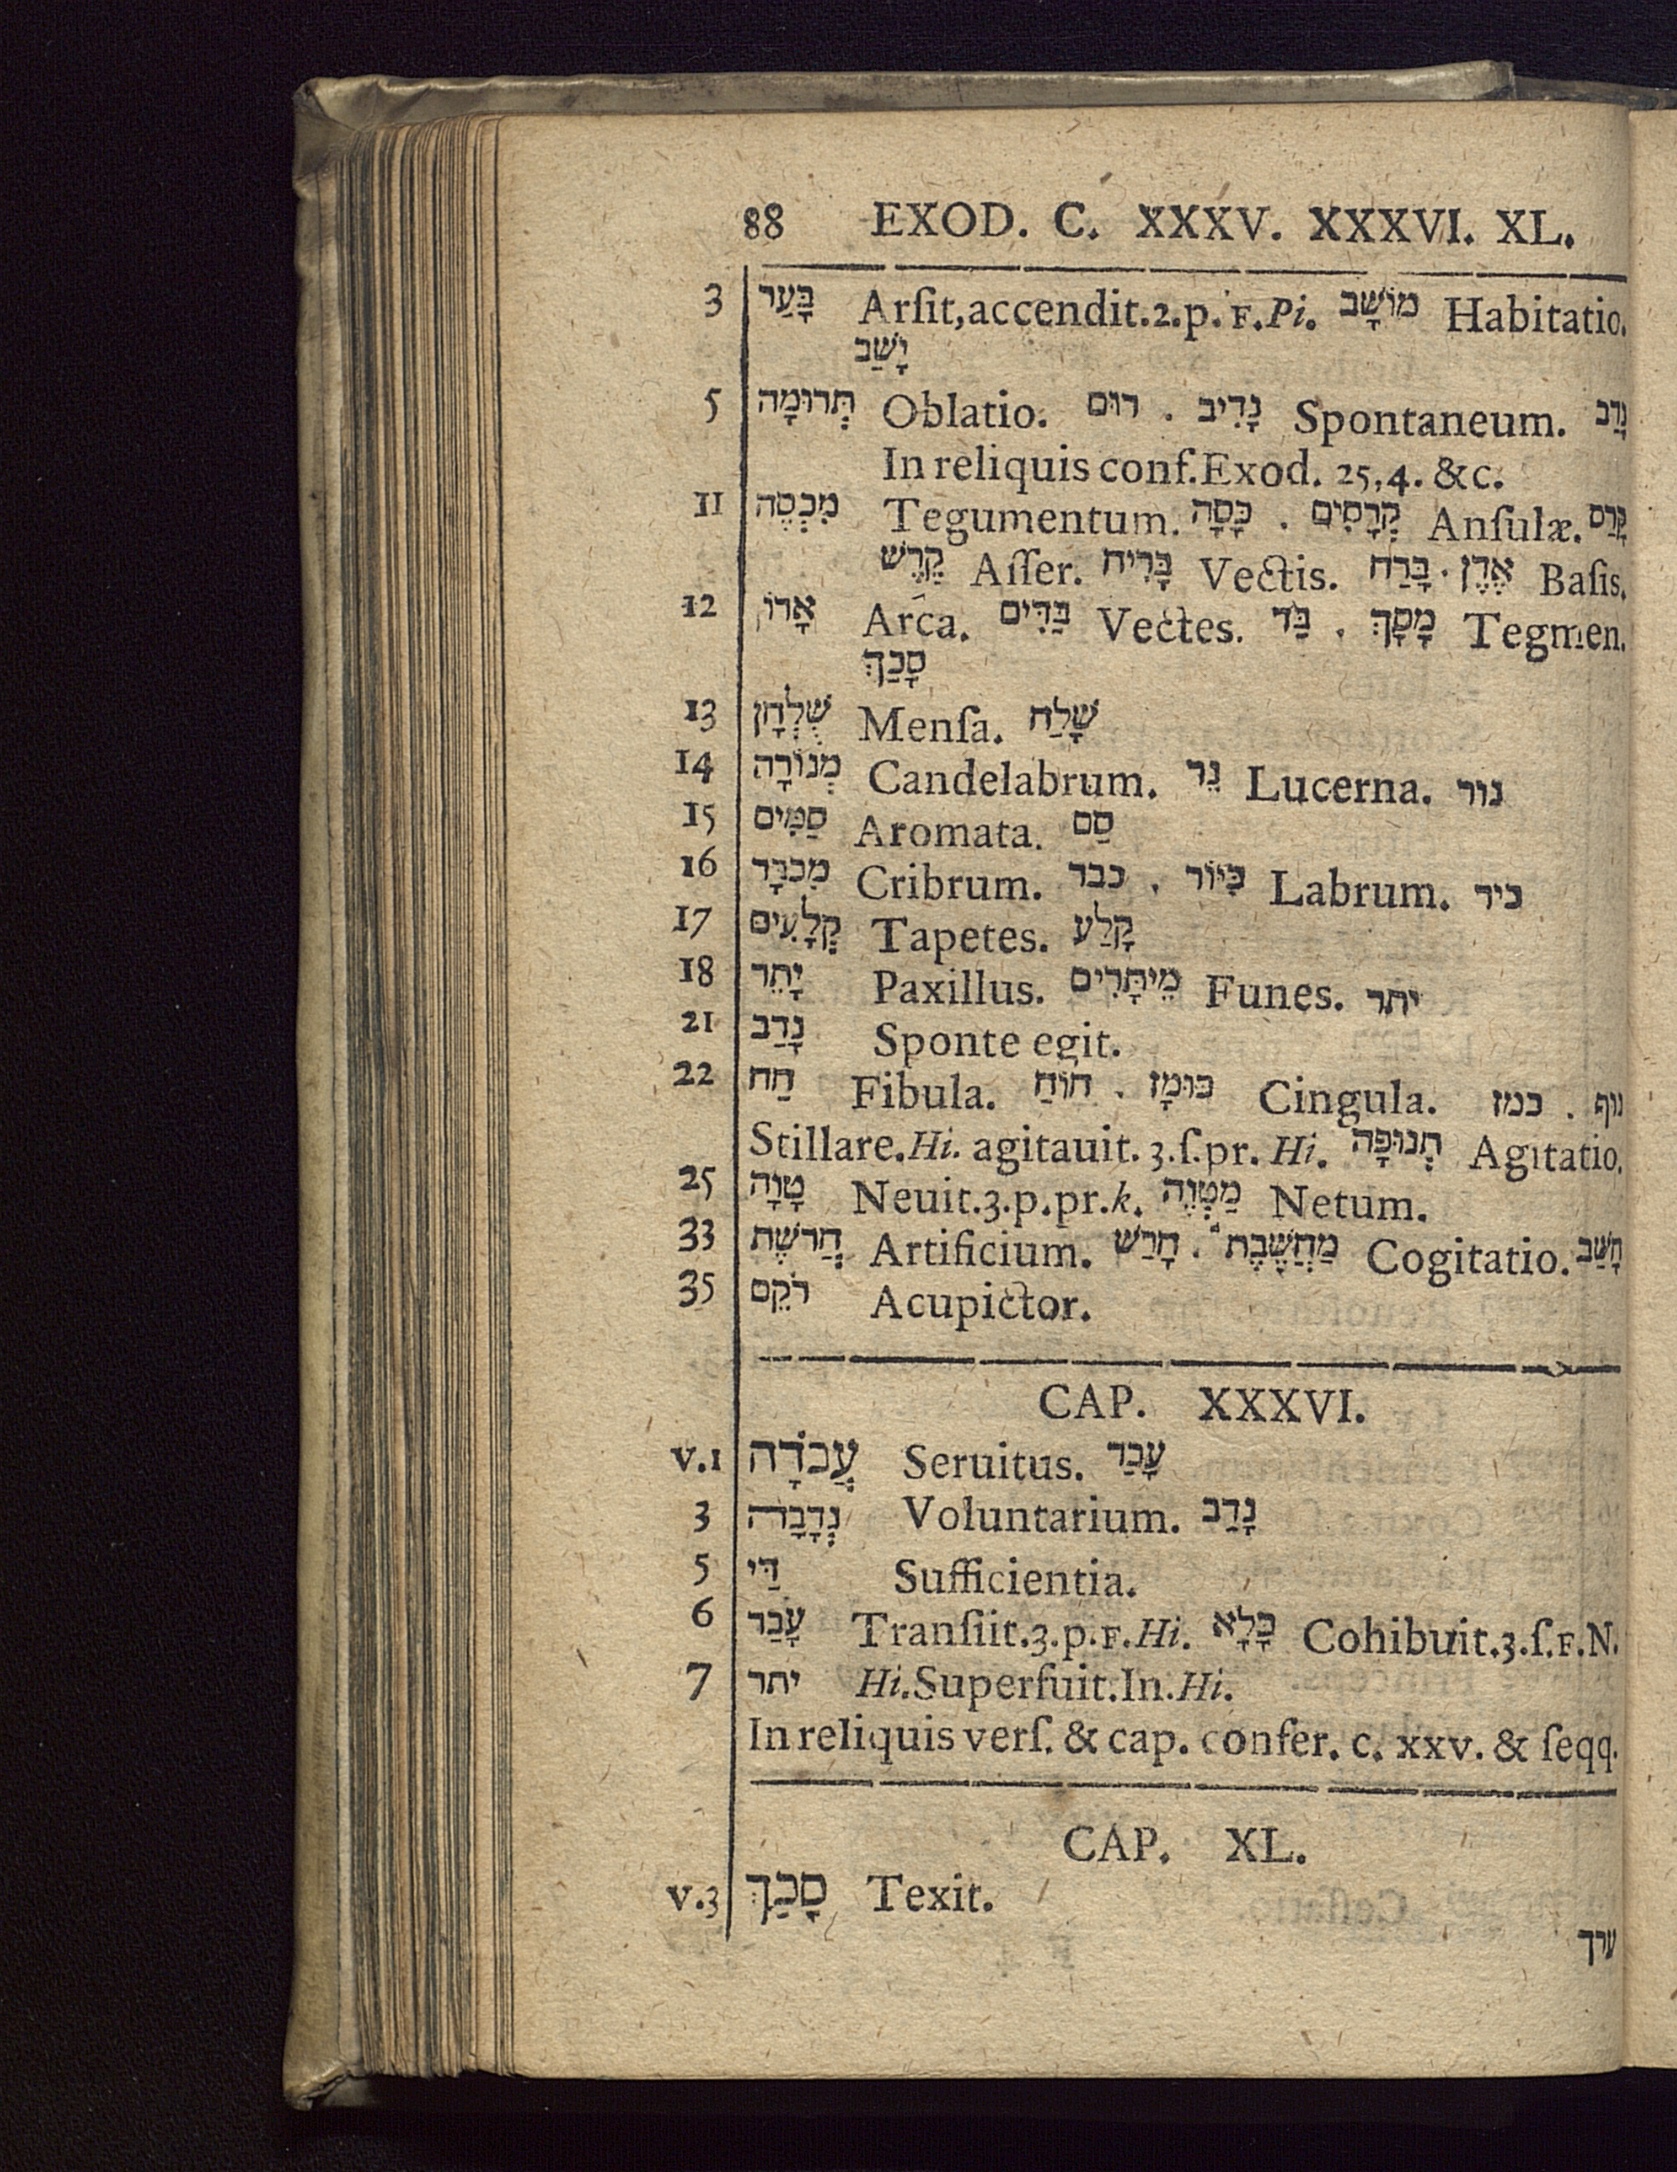 88 EXOD. C. XXXV. XXXVI. XL.
3 בָּעַר Arſit, accendit. 2. p. F. Pi. מוֹשָׁב Habitatio.
יָשַׁב
5 תְּרוּמָה Oblatio. רום . נָדִיב Spontaneum. נָדַב
In reliquis conf. Exod. 25,4. &c.
11 מִכְסֶה Tegumentum. כָּסָה . קְרָסִים Anſulæ. קָרַס
קֶרֶשׁ Aſſer. בְּרִיח Vectis. בָּרַח . אֶדֶן Baſis.
12 אָרוֹן Arca. בַּדִּים Vectes. בַּד . מָסָךְ Tegmen.
סָכַךְ
13 שֻׁלְחָן Menſa. שָׁלַח
14 מְנוֹרָה Candelabrum. נֵר Lucerna. נור
15 סַמִּים Aromata. סַם
16 מִכבָּר Cribrum. כבר . כִּיּוֹר Labrum. כיר
17 קְלָעִים Tapetes. קָלַע
18 יָתֵר Paxillus. מֵיתָּרִים Funes. יתר
21 נָדַב Sponte egit.
22 חַח Fibula. חוֹחַ . כּוּמָז Cingula. כמז . נוף
Stillare. Hi. agitauit. 3. ſ. pr. Hi. תְנוּפָּה Agitatio.
25 טָוָה Neuit. 3. p. pr. k. מַטְוֶה Netum.
33 חֲרשֶׁת Artificium. חָרַשׁ . מַחֲשֶׁבֶת Cogitatio. חָשַׁב
35 רֹקֵם Acupictor.
CAP. XXXVI.
v. 1 עֲבֹדָה Seruitus. עָבַד
3 נְדָבָה Voluntarium. נָדַב
5 דַּי Sufficientia.
6 עָבַר Tranſiit. 3. p. F. Hi. כָּלָא Cohibuit. 3. ſ. F. N.
7 יתר Hi. Superfuit. In. Hi.
In reliquis verſ. & cap. confer. c. xxv. & ſeqq.
CAP. XL.
v. 3 סָכַךְ Texit.
ערך